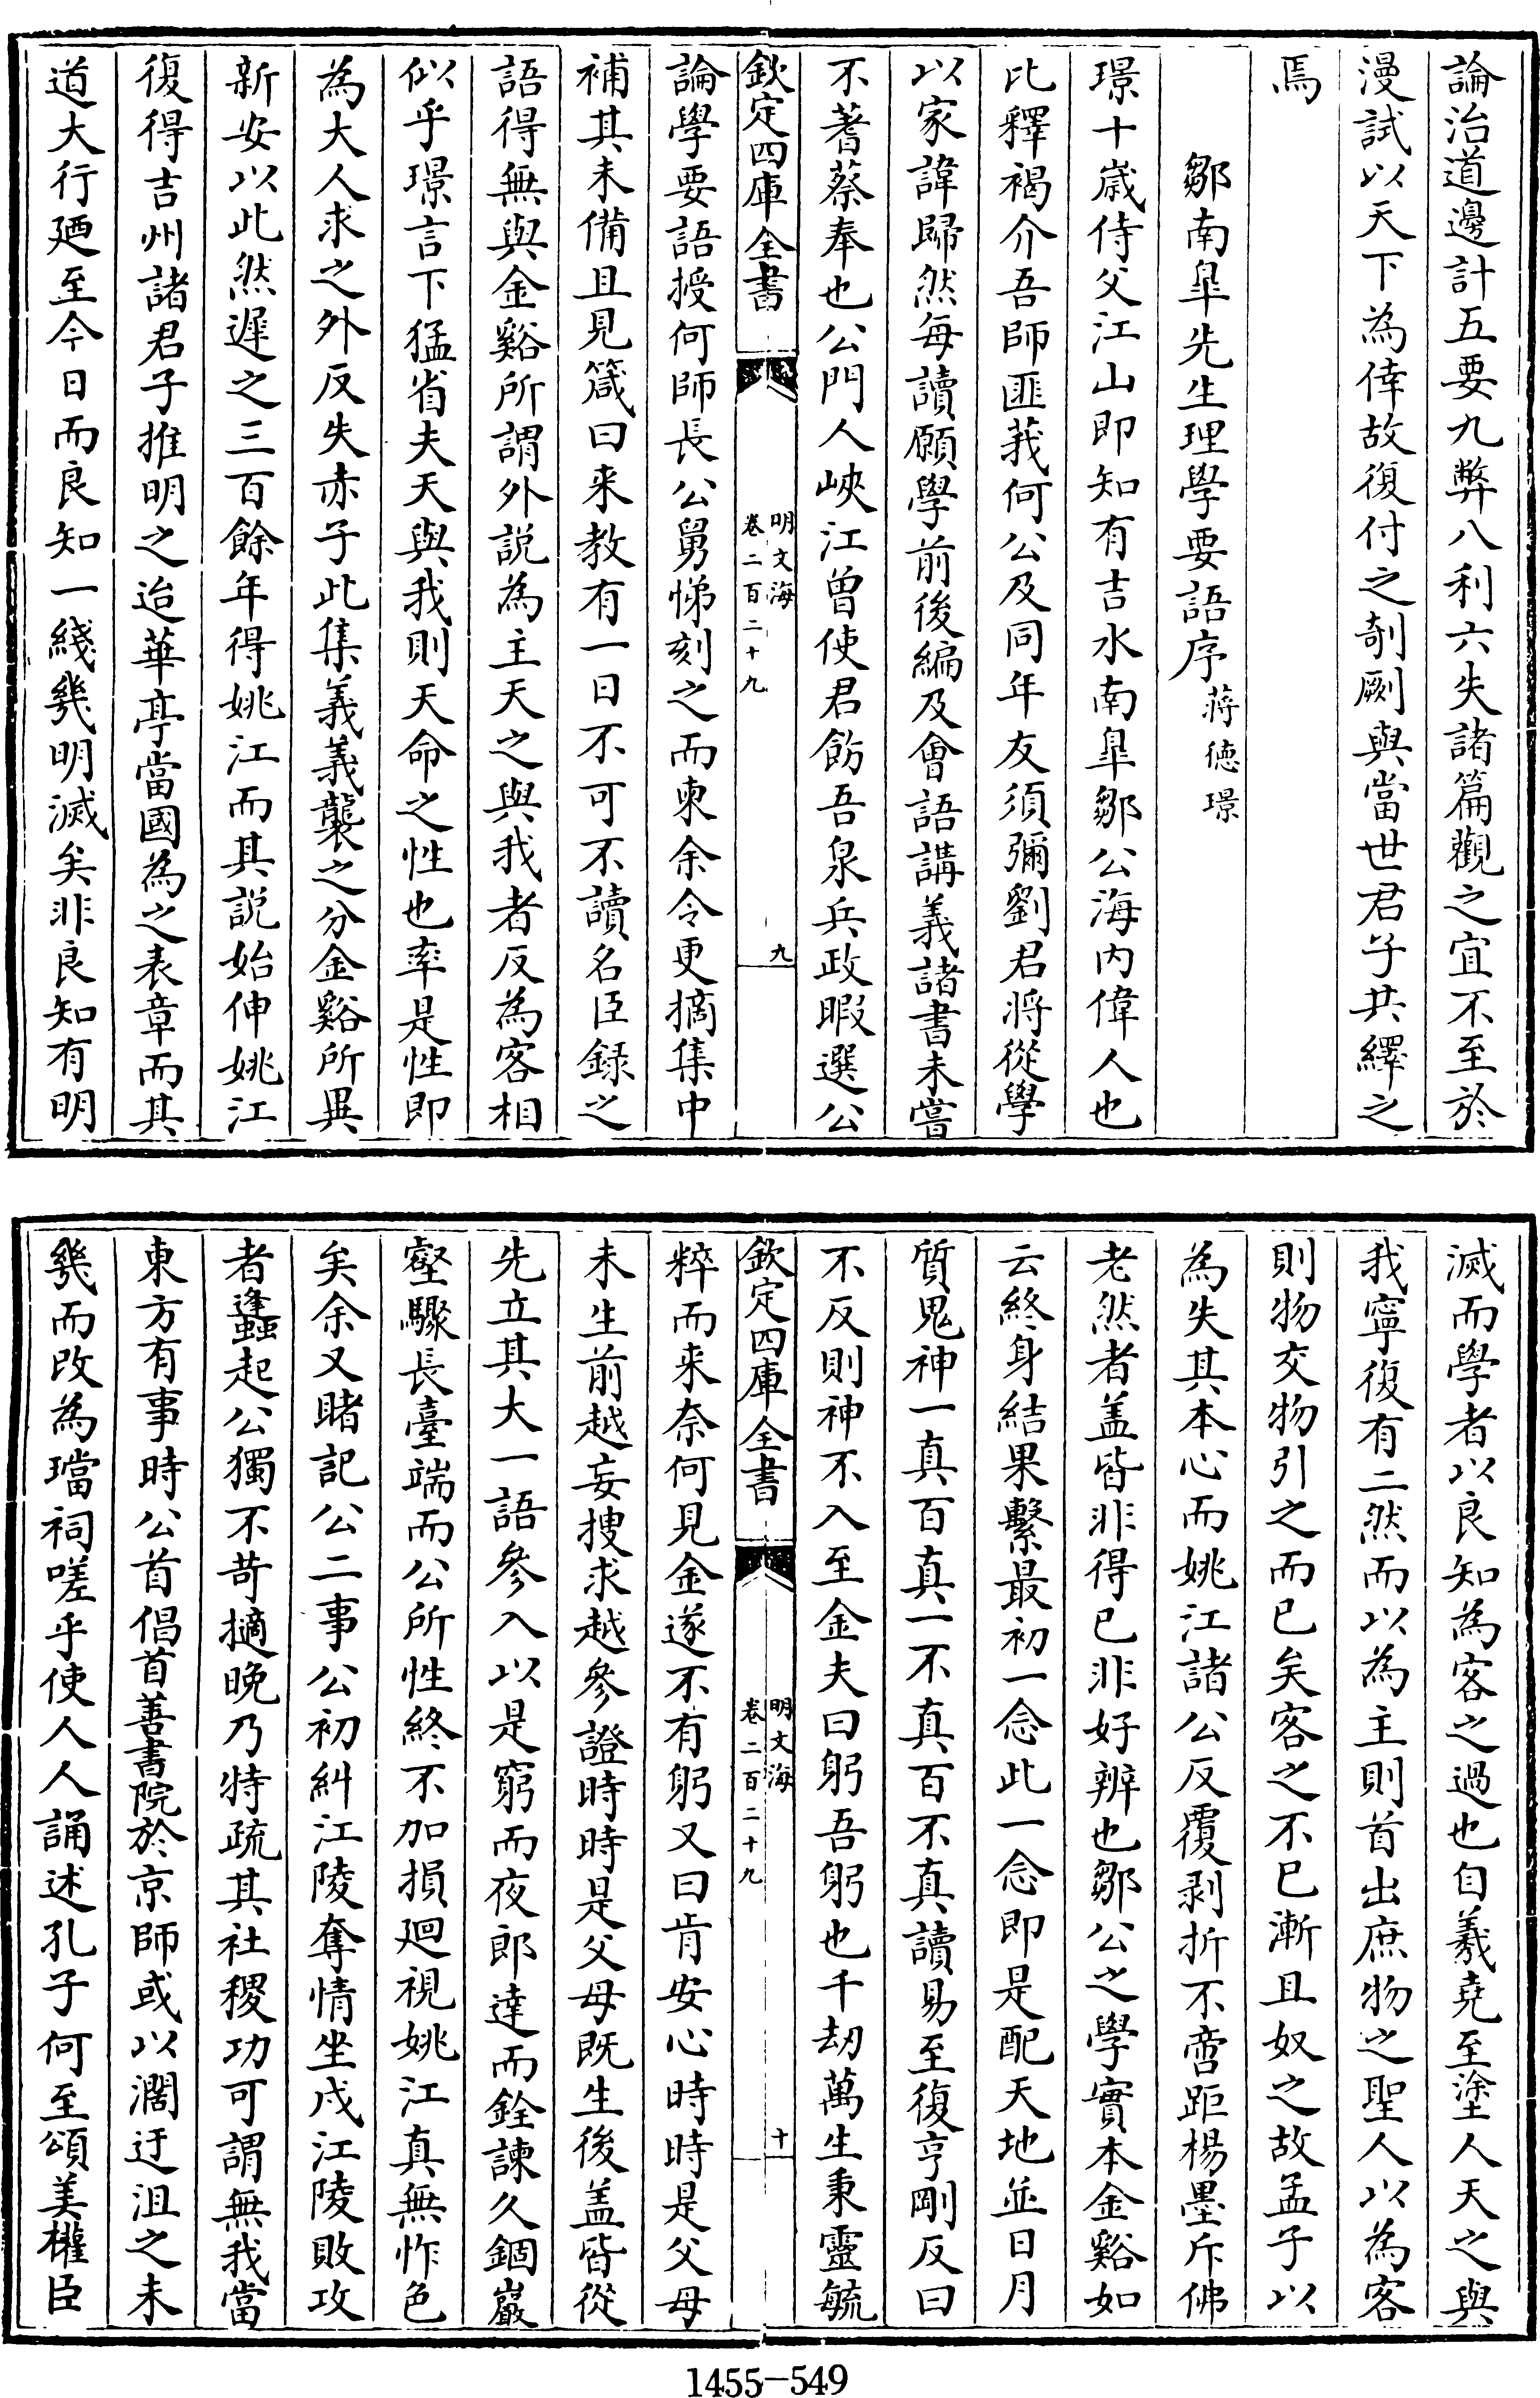 論治道邊計五要九弊八利六失諸篇觀之宜不至於
漫試以天下為倖故復付之剞劂與當世君子共繹之
焉
鄒南臯先生理學要語序 蔣德璟
璟十歲侍父江山即知有吉水南臯鄒公海內偉人也
比釋褐介吾師匪莪何公及同年友須彌劉君將從學
以家諱歸然每讀願學前後編及會語講義諸書未嘗
不蓍蔡奉也公門人峽江曾使君飭吾泉兵政暇選公
欽定四庫全書
明文海
卷二百二十九
九
論學要語授何師長公舅悌刻之而柬余令更摘集中
補其未備且見箴曰来教有一日不可不讀名臣録之
語得無與金谿所謂外說為主天之與我者反為客相
似乎璟言下猛省夫天與我則天命之性也率是性即
為大人求之外反失赤子此集義義襲之分金谿所異
新安以此然遲之三百餘年得姚江而其說始伸姚江
復得吉州諸君子推明之迨華亭當國為之表章而其
道大行廼至今日而良知一綫幾明滅矣非良知有明
滅而學者以良知為客之過也自羲堯至塗人天之與
我寧復有二然而以為主則首出庶物之聖人以為客
則物交物引之而已矣客之不已漸且奴之故孟子以
為失其本心而姚江諸公反覆剥折不啻距楊墨斥佛
老然者盖皆非得已非好辨也鄒公之學實本金谿如
云終身結果繫最初一念此一念即是配天地並日月
質鬼神一真百真一不真百不真讀易至復亨剛反曰
不反則神不入至金夫曰躬吾躬也千劫萬生秉靈毓
欽定四庫全書
明文海
卷二百二十九
十
粹而来奈何見金遂不有躬又曰肯安心時時是父母
未生前越妄搜求越參證時時是父母既生後盖皆從
先立其大一語參入以是窮而夜郎達而銓諫久錮巖
壑驟長臺端而公所性終不加損廻視姚江真無怍色
矣余又睹記公二事公初糾江陵奪情坐戍江陵敗攻
者蠭起公獨不苛擿晚乃特疏其社稷功可謂無我當
東方有事時公首倡首善書院於京師或以濶迂沮之未
幾而改為璫祠嗟乎使人人誦述孔子何至頌美權臣
1455-549